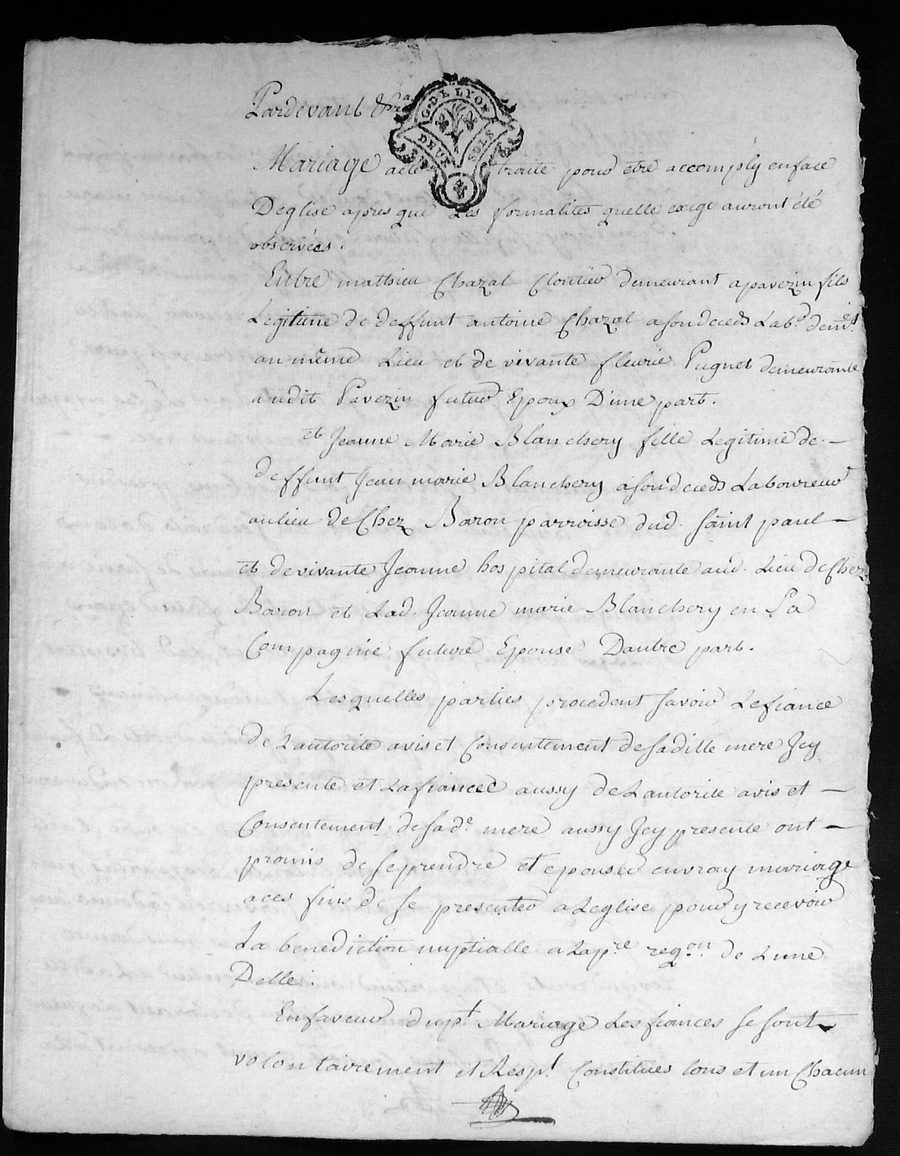 Pardevant &ra
G. DE LYON
DEUX SOLS
Mariage a été traité pour etre accomply enface
Deglise apres que Les formalites quelle exige auront été
observées.
Entre mathieu Chazal Cloutier demeurant apavezin fils
Legitime de deffunt antoine Chazal asondeceds Lab.r
au même Lieu et de vivante fleurie Pugnet demeurante
audit Pavezin futur Epoux D'une part.
et Jeanne Marie Blanchery fille Legitime de -
deffunt Jean marie Blanchery asondeceds Laboureur
aulieu de Chez Baron parroisse dud. Saint paul -
et devivante Jeanne hospital demeurante aud. Lieu de Chez
Baron et Lad. Jeanne marie Blanchery en Sa
Compagnie future Epouse Dautre part.
Lesquelles parties procedent Savoir Lefiancé
de Lautorité avis et Consentement desaditte mere Icy
presente et Lafiancée aussy de Lautorité avis et -
Consentement desad.e mere aussy Icy presente ont -
promis de Seprendre et epouser envray mariage
aces fins de se presenter a Leglise pour y recevoir
La benediction nuptialle a Lap.re req.on de Lune
Delles.
Enfaveur dup.t Mariage Les fiancés se sont
volontairement et Resp.t Constitués tous et un Chacun